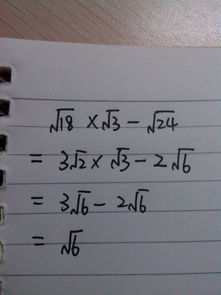 √18 × √3 − √24
= 3√2 × √3 − 2√6
= 3√6 − 2√6
= √6